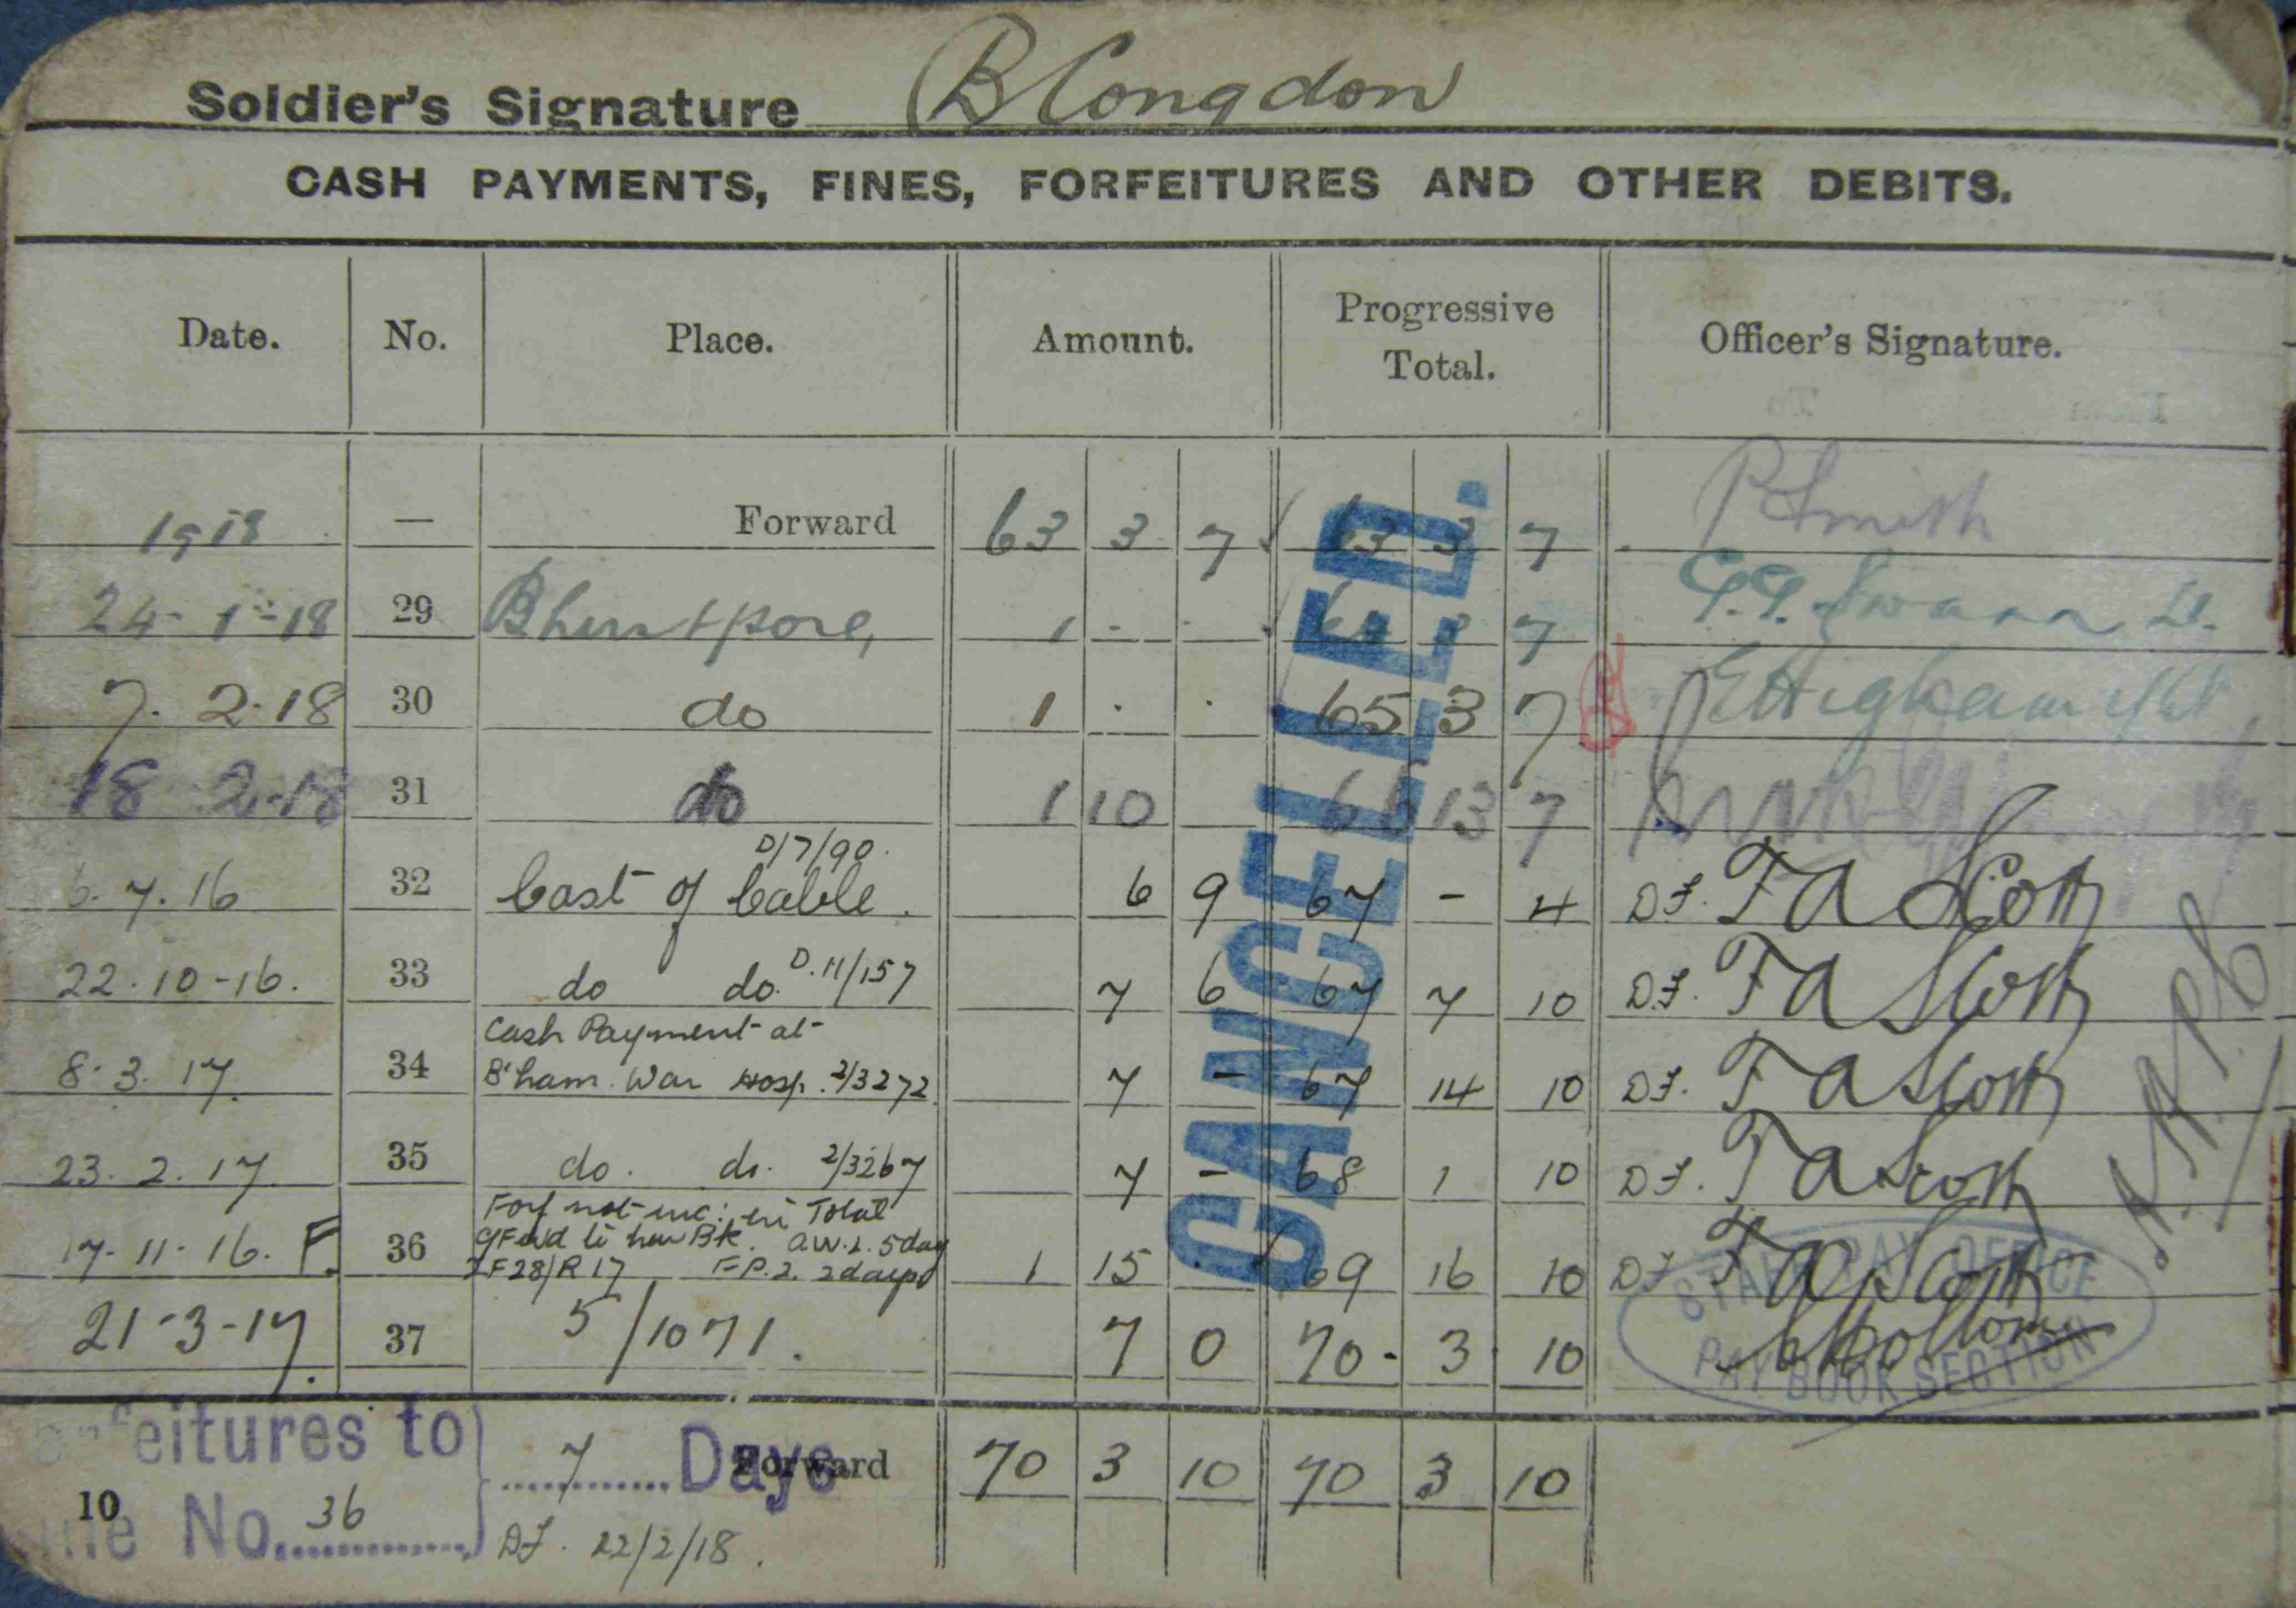 Soldier's Signature B Congdon
CASH PAYMENTS, FINES, FORFEITURES AND OTHER DEBITS.
Date. No. Place. Amount. Progressive Total. Officer's Signature.
1918 — Forward 63 3 7 63 3 7 P Smith
24-1-18 29 1 - - 64 3 7 Swann Lt.
7.2.18 30 do 1 . . 65 3 7 Higham
18 2.18 31 do 1 10 66 13 7
D/7/90.
6.7.16 32 Cost of Cable. 6 9 67 - 4 DF. F A Scott
22.10-16. 33 do do. D.11/157 7 6 67 7 10 D.F. F A Scott
Cash Payment at
8.3.17. 34 B'ham. War Hosp. 2/3272 7 - 67 14 10 DF. F A Scott
23.2.17. 35 do. do. 2/3267 7 - 68 1 10 DF. F A Scott
Forf not inc: in Total
17.11.16. F. 36 Fwd to new Bk. A.W.L. 5 days
2F28/R17 F.P.2. 2 days 1 15 - 69 16 10 DF F A Scott
21-3-17. 37 5/1071. 7 0 70. 3 10
STAFF PAY OFFICE
PAY BOOK SECTION
CANCELLED.
eitures to 7 Days Forward 70 3 10 70 3 10
10
No. 36 DF. 22/2/18.